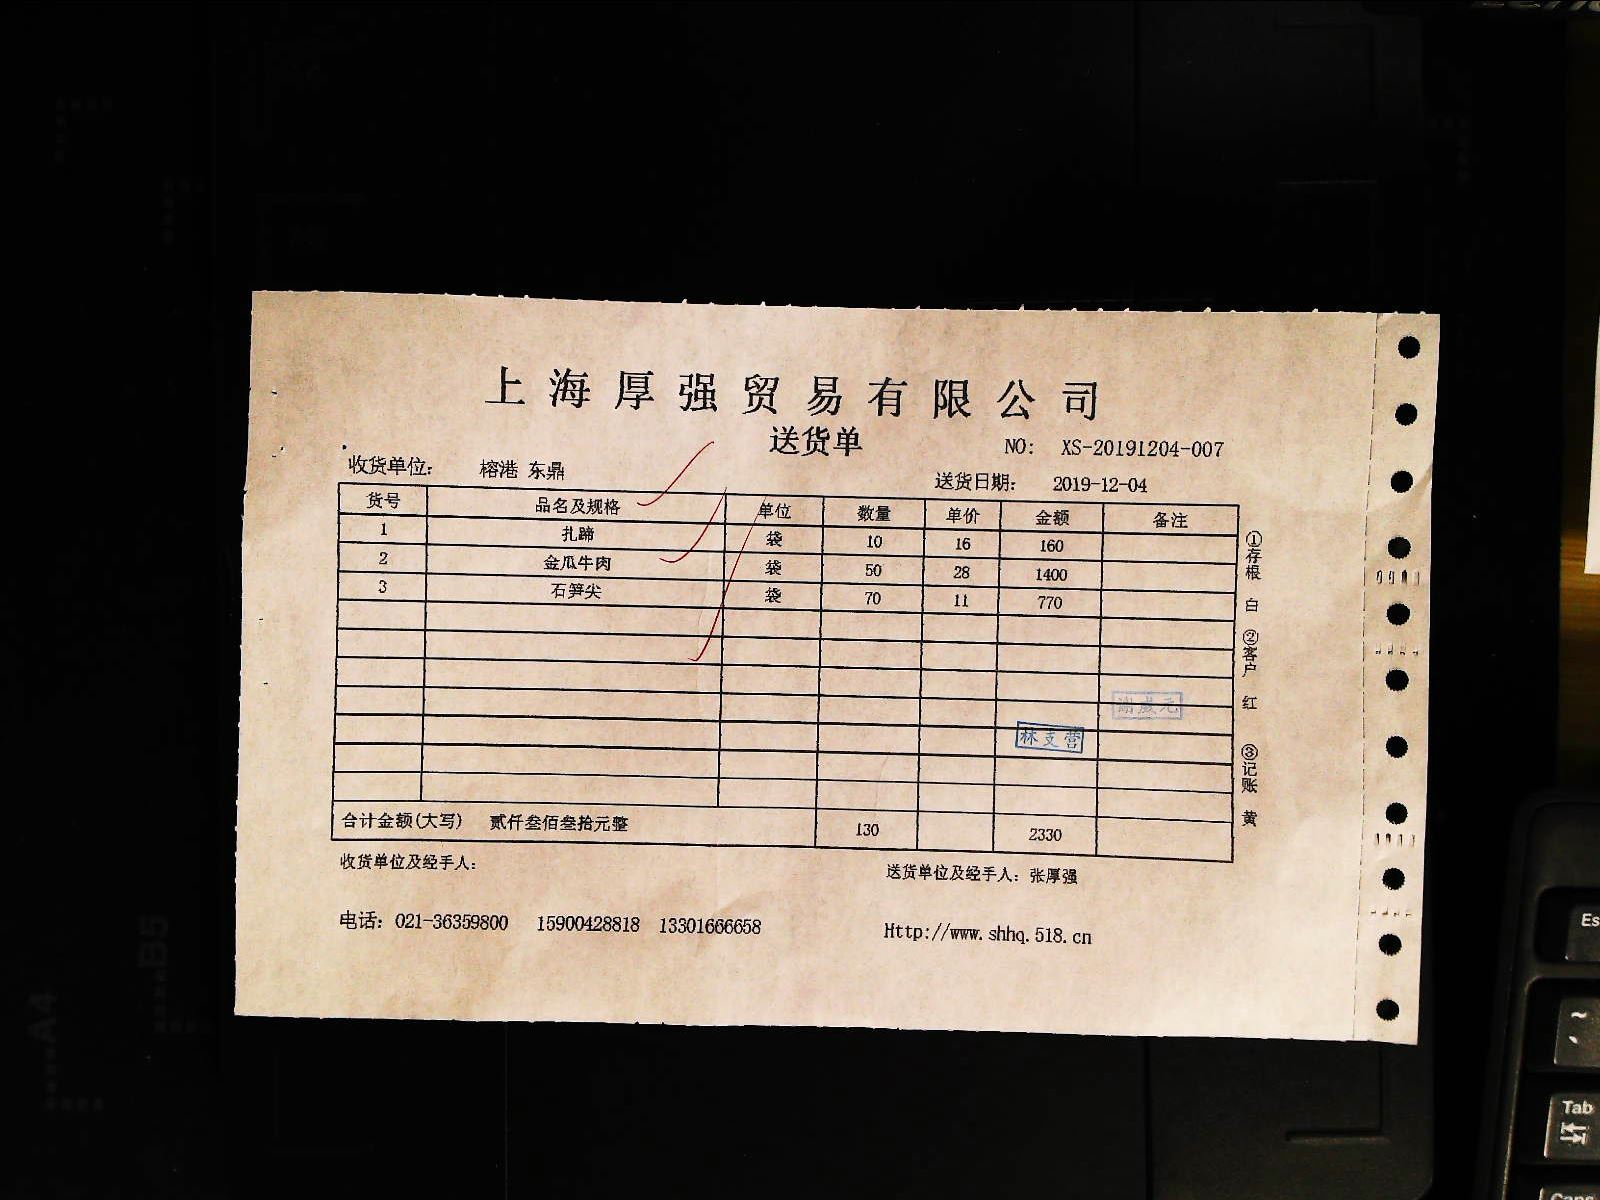 上海厚强贸易有限公司
送货单
NO: XS-20191204-007
收货单位: 榕港 东鼎
送货日期: 2019-12-04
货号 品名及规格 单位 数量 单价 金额 备注
1 扎蹄 袋 10 16 160
2 金瓜牛肉 袋 50 28 1400
3 石笋尖 袋 70 11 770
林支营
合计金额(大写) 贰仟叁佰叁拾元整 130 2330
收货单位及经手人:
送货单位及经手人: 张厚强
电话: 021-36359800 15900428818 13301666658
Http://www.shhq.518.cn
①存根 白 ②客户 红 ③记账 黄
A4
B5
Es
~
Tab
Caps